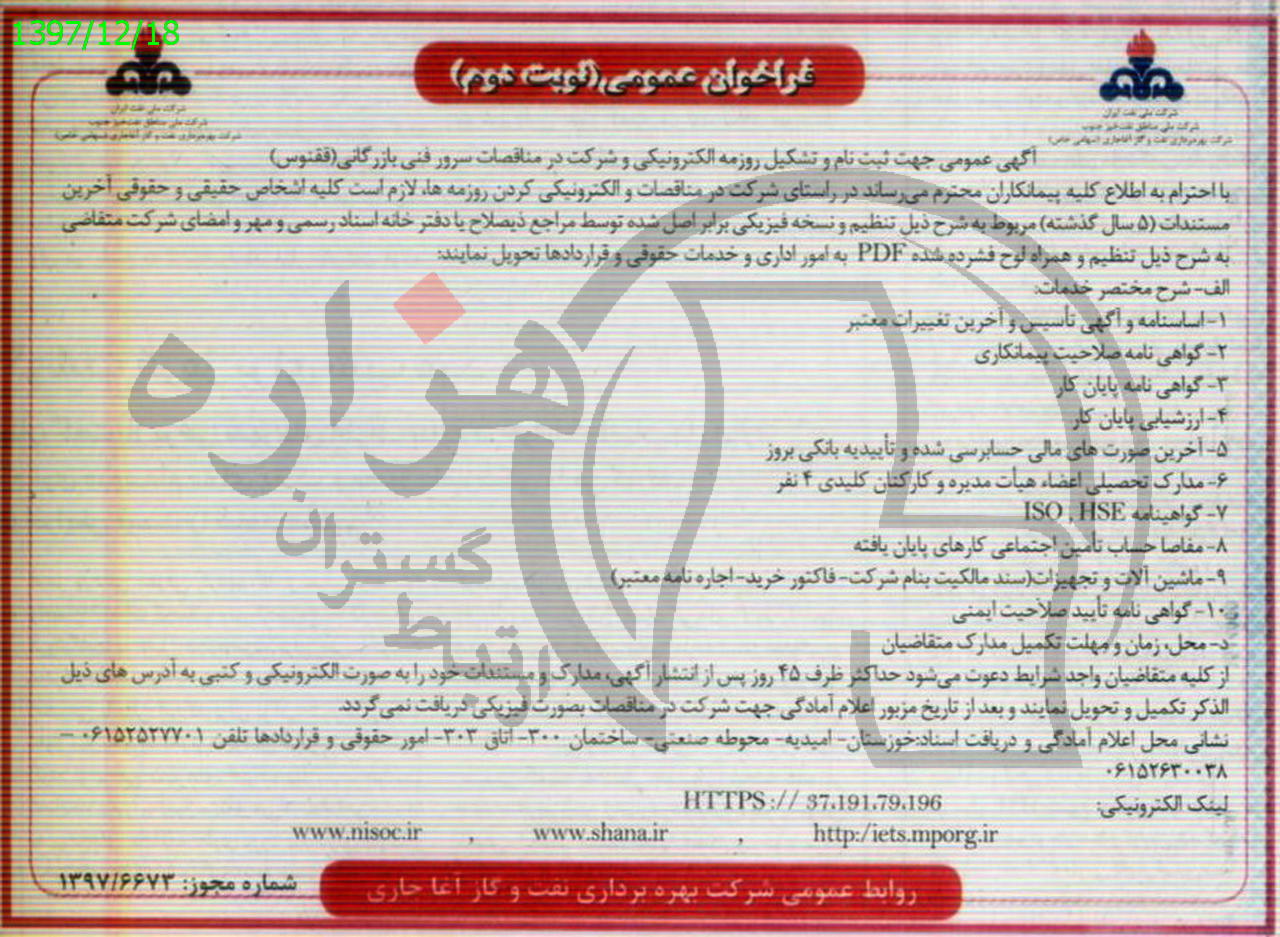 1397/12/18
فراخوان عمومی(نوبت دوم)
شرکت ملی نفت ایران
شرکت ملی مناطق نفت‌خیز جنوب
شرکت بهره‌برداری نفت و گاز آغاجاری (سهامی خاص)
شرکت ملی نفت ایران
شرکت ملی مناطق نفت‌خیز جنوب
شرکت بهره‌برداری نفت و گاز آغاجاری (سهامی خاص)
آگهی عمومی جهت ثبت نام و تشکیل روزمه الکترونیکی و شرکت در مناقصات سرور فنی بازرگانی(ققنوس)
با احترام به اطلاع کلیه پیمانکاران محترم می‌رساند در راستای شرکت در مناقصات و الکترونیکی کردن روزمه ها، لازم است کلیه اشخاص حقیقی و حقوقی آخرین
مستندات (۵ سال گذشته) مربوط به شرح ذیل تنظیم و نسخه فیزیکی برابر اصل شده توسط مراجع ذیصلاح یا دفتر خانه اسناد رسمی و مهر و امضای شرکت متقاضی
به شرح ذیل تنظیم و همراه لوح فشرده شده PDF به امور اداری و خدمات حقوقی و قراردادها تحویل نمایند:
الف- شرح مختصر خدمات:
۱- اساسنامه و آگهی تأسیس و آخرین تغییرات معتبر
۲- گواهی نامه صلاحیت پیمانکاری
۳- گواهی نامه پایان کار
۴- ارزشیابی پایان کار
۵- آخرین صورت های مالی حسابرسی شده و تأییدیه بانکی بروز
۶- مدارک تحصیلی اعضاء هیأت مدیره و کارکنان کلیدی ۴ نفر
۷- گواهینامه ISO , HSE
۸- مفاصا حساب تأمین اجتماعی کارهای پایان یافته
۹- ماشین آلات و تجهیزات(سند مالکیت بنام شرکت- فاکتور خرید- اجاره نامه معتبر)
۱۰- گواهی نامه تأیید صلاحیت ایمنی
د- محل، زمان و مهلت تکمیل مدارک متقاضیان
از کلیه متقاضیان واجد شرایط دعوت می‌شود حداکثر ظرف ۴۵ روز پس از انتشار آگهی، مدارک و مستندات خود را به صورت الکترونیکی و کتبی به آدرس های ذیل
الذکر تکمیل و تحویل نمایند و بعد از تاریخ مزبور اعلام آمادگی جهت شرکت در مناقصات بصورت فیزیکی دریافت نمی‌گردد.
نشانی محل اعلام آمادگی و دریافت اسناد:خوزستان- امیدیه- محوطه صنعتی- ساختمان ۳۰۰- اتاق ۳۰۳- امور حقوقی و قراردادها تلفن ۰۶۱۵۲۵۲۷۷۰۱ –
۰۶۱۵۲۶۳۰۰۳۸
لینک الکترونیکی: HTTPS :// 37.191.79.196
http:/iets.mporg.ir , www.shana.ir , www.nisoc.ir
روابط عمومی شرکت بهره برداری نفت و گاز آغا جاری
شماره مجوز: ۱۳۹۷/۶۶۷۳
هزاره
گستران
ارتباط